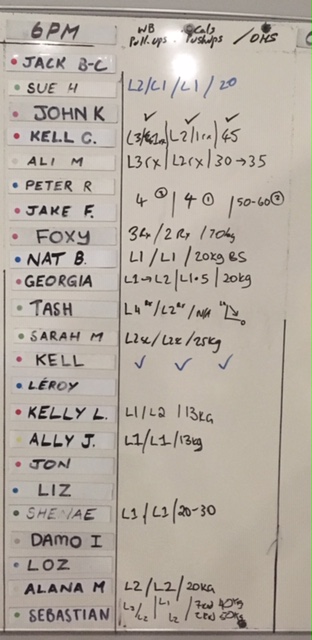 6PM WB Pull-ups / Cals Pushups / OHS
JACK B-C
SUE H L2/L1/L1/20
JOHN K
KELL C. L2/1rx 45
ALI M L3rx L2rx 30→35
PETER R
JAKE F. 4 ② 4 ① 50-60 ②
FOXY 3Rx/2Rx/70kg
NAT B. L1/L1/20kg BS
GEORGIA L1→L2 L1.5 20kg
TASH L4 Rx/L2 Rx/N/A
SARAH M /25kg
KELL ✓ ✓ ✓
LEROY
KELLY L. L1/L2 13KG
ALLY J. L1/L1/13kg
JON
LIZ
SHENAE L1/L1/20-30
DAMO I
LOZ
ALANA M L2/L2/20KG
SEBASTIAN L2/L2 L1 L2